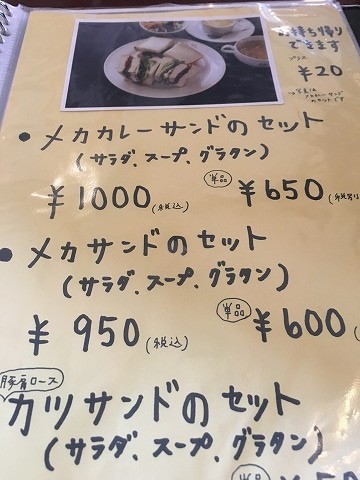 お持ち帰り
できます
プラス
¥20
・メカカレーサンドのセット
(サラダ、スープ、グラタン)
¥1000(税込) 単品 ¥650
・メカサンドのセット
(サラダ、スープ、グラタン)
¥950(税込) 単品 ¥600
豚肩ロース
カツサンドのセット
(サラダ、スープ、グラタン)
単品